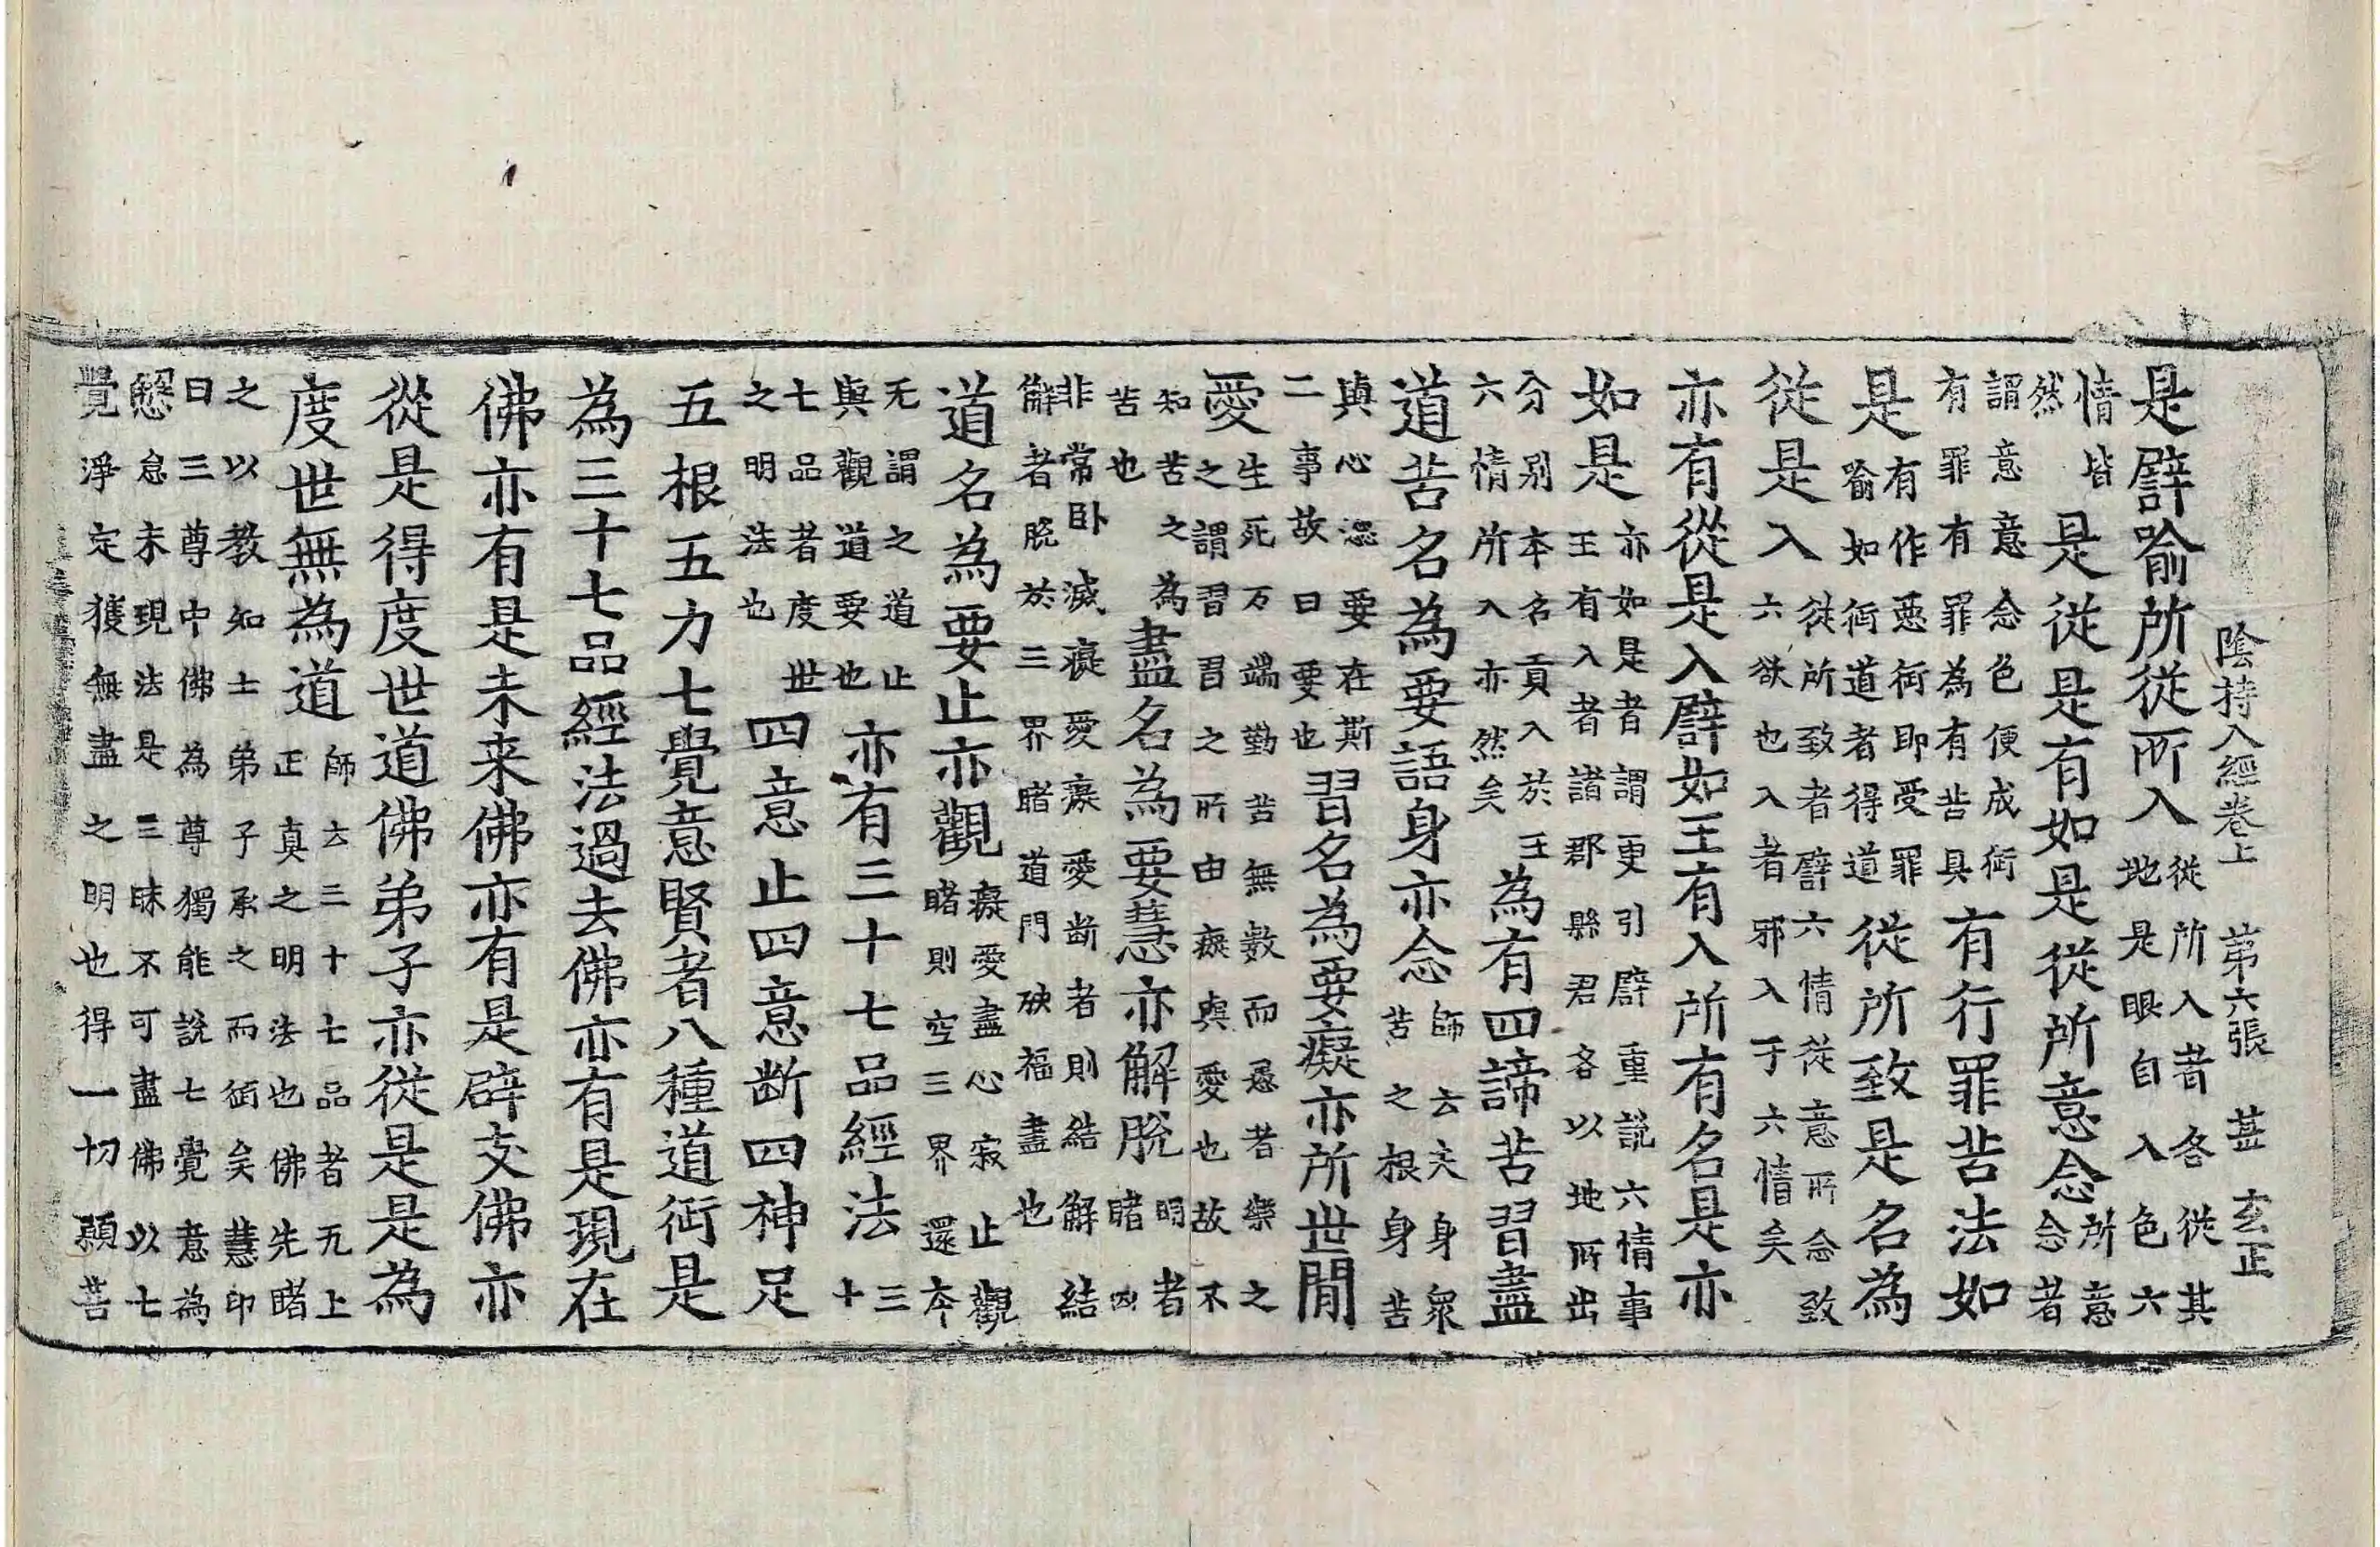 陰持入經卷上 第六張 甚 玄正
是譬喻所從所入從所入者各從其
地是眼自入色六
情皆
然
是從是有如是從所意念所意
念者
謂意意念色便成衒
有罪有罪為有苦具
有行罪苦法如
是有作惡衒即受罪
喻如衒道者得道
從所致是名為
從是入從所致者譬六情從意所念致
六欲也入者邪入于六情矣
亦有從是入譬如王有入所有名是亦
如是亦如是者謂更引譬重說六情事
王有入者諸郡縣君各以地所出
分別本名貢入於王
六情所入亦然矣
為有四諦苦習盡
道苦名為要語身亦念師云夫身衆
苦之根身苦
與心惱要在斯
二事故曰要也
習名為要癡亦所世閒
愛生死万端勤苦無數而愚者樂之
之謂習習之所由癡與愛也故不
知苦之為
苦也
盡名為要慧亦解脫明者
睹凶
非常卧滅癡愛癡愛断者則結解結
解者脫於三界睹道門殃福盡也
道名為要止亦觀癡愛盡心寂止觀
睹則空三界還本
无謂之道止
與觀道要也
亦有三十七品經法三
十
七品者度世
之明法也
四意止四意断四神足
五根五力七覺意賢者八種道衒是
為三十七品經法過去佛亦有是現在
佛亦有是未来佛亦有是辟支佛亦
從是得度世道佛弟子亦從是是為
度世無為道師云三十七品者无上
正真之明法也佛先睹
之以教知士弟子承之而衒矣慧印
曰三尊中佛為尊獨能說七覺意為
愍怠未現法是三昧不可盡佛以七
覺淨定獲無盡之明也得一切願菩